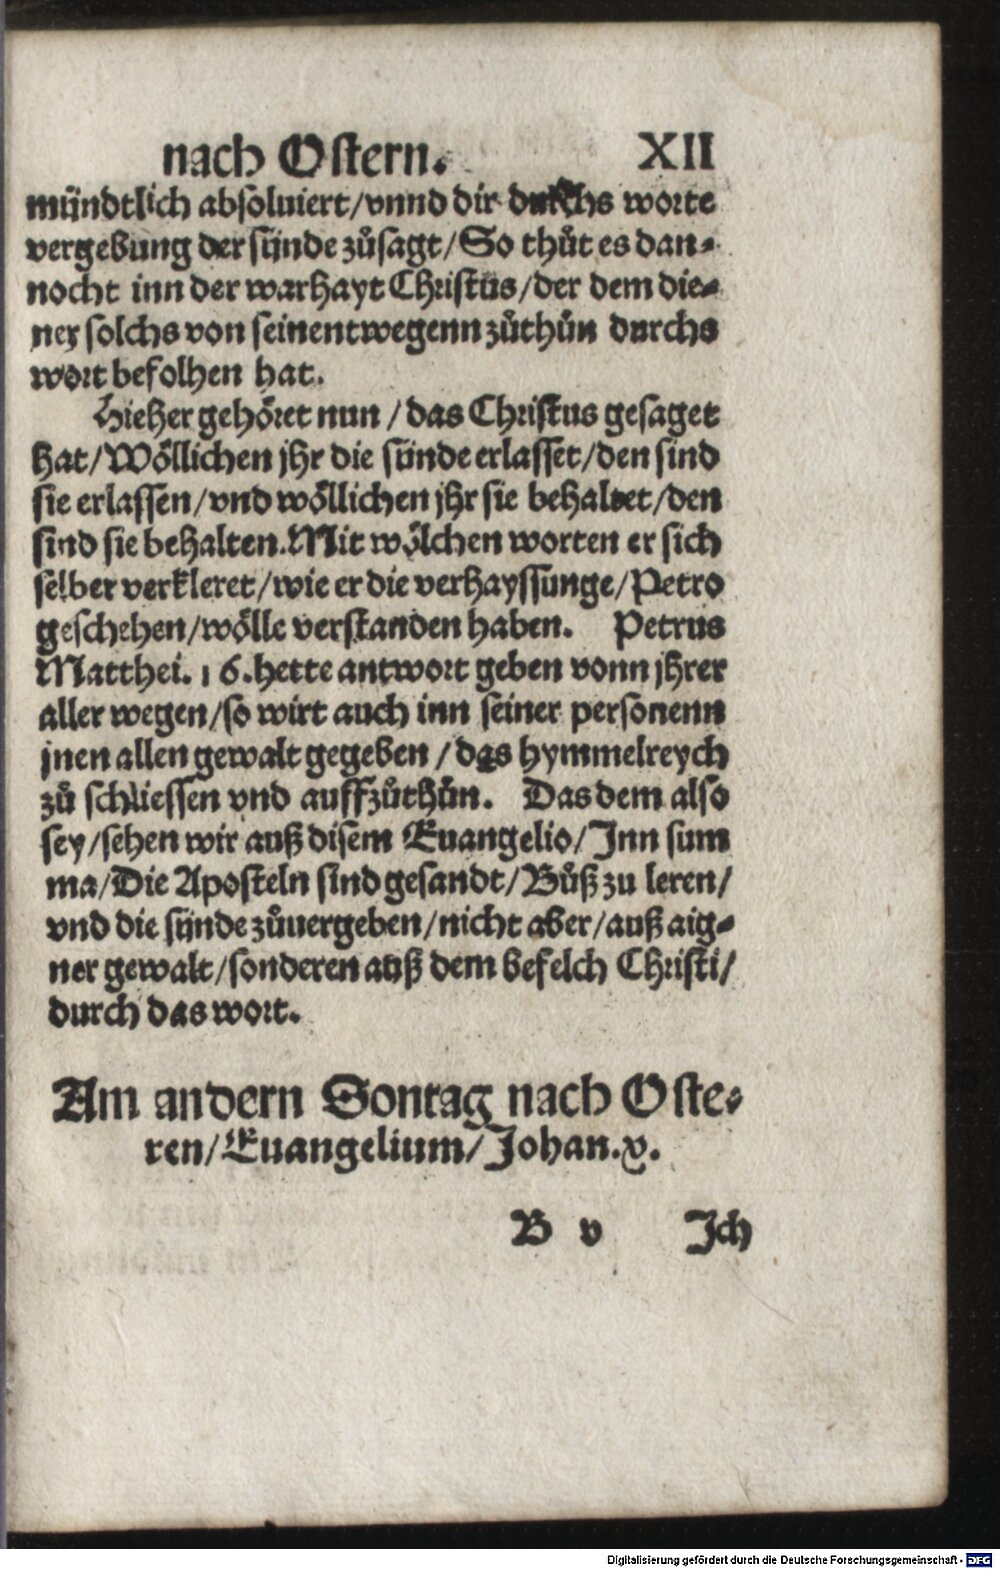 nach Ostern. XII
mündtlich absoluiert/vnnd dir durchs worte
vergebung der sünde zůsagt/So thůt es dan-
nocht inn der warhayt Christus/der dem die-
ner solchs von seinentwegenn zůthůn durchs
wort befolhen hat.
Hieher gehöret nun/das Christus gesaget
hat/Wöllichen jhr die sünde erlasset/den sind
sie erlassen/vnd wöllichen jhr sie behaltet/den
sind sie behalten. Mit wölchen worten er sich
selber verkleret/wie er die verhayssunge/Petro
geschehen/wölle verstanden haben. Petrus
Matthei. 16. hette antwort geben vonn jhrer
aller wegen/so wirt auch inn seiner personenn
jnen allen gewalt gegeben/das hymmelreych
zů schliessen vnd auffzůthůn. Das dem also
sey/sehen wir auß disem Euangelio/Inn sum
ma/Die Aposteln sind gesandt/Bůß zu leren/
vnd die sünde zůuergeben/nicht aber/auß aig-
ner gewalt/sonderen auß dem befelch Christi/
durch das wort.
Am andern Sontag nach Oste-
ren/Euangelium/Johan.x.
B v Ich
Digitalisierung gefördert durch die Deutsche Forschungsgemeinschaft - DFG